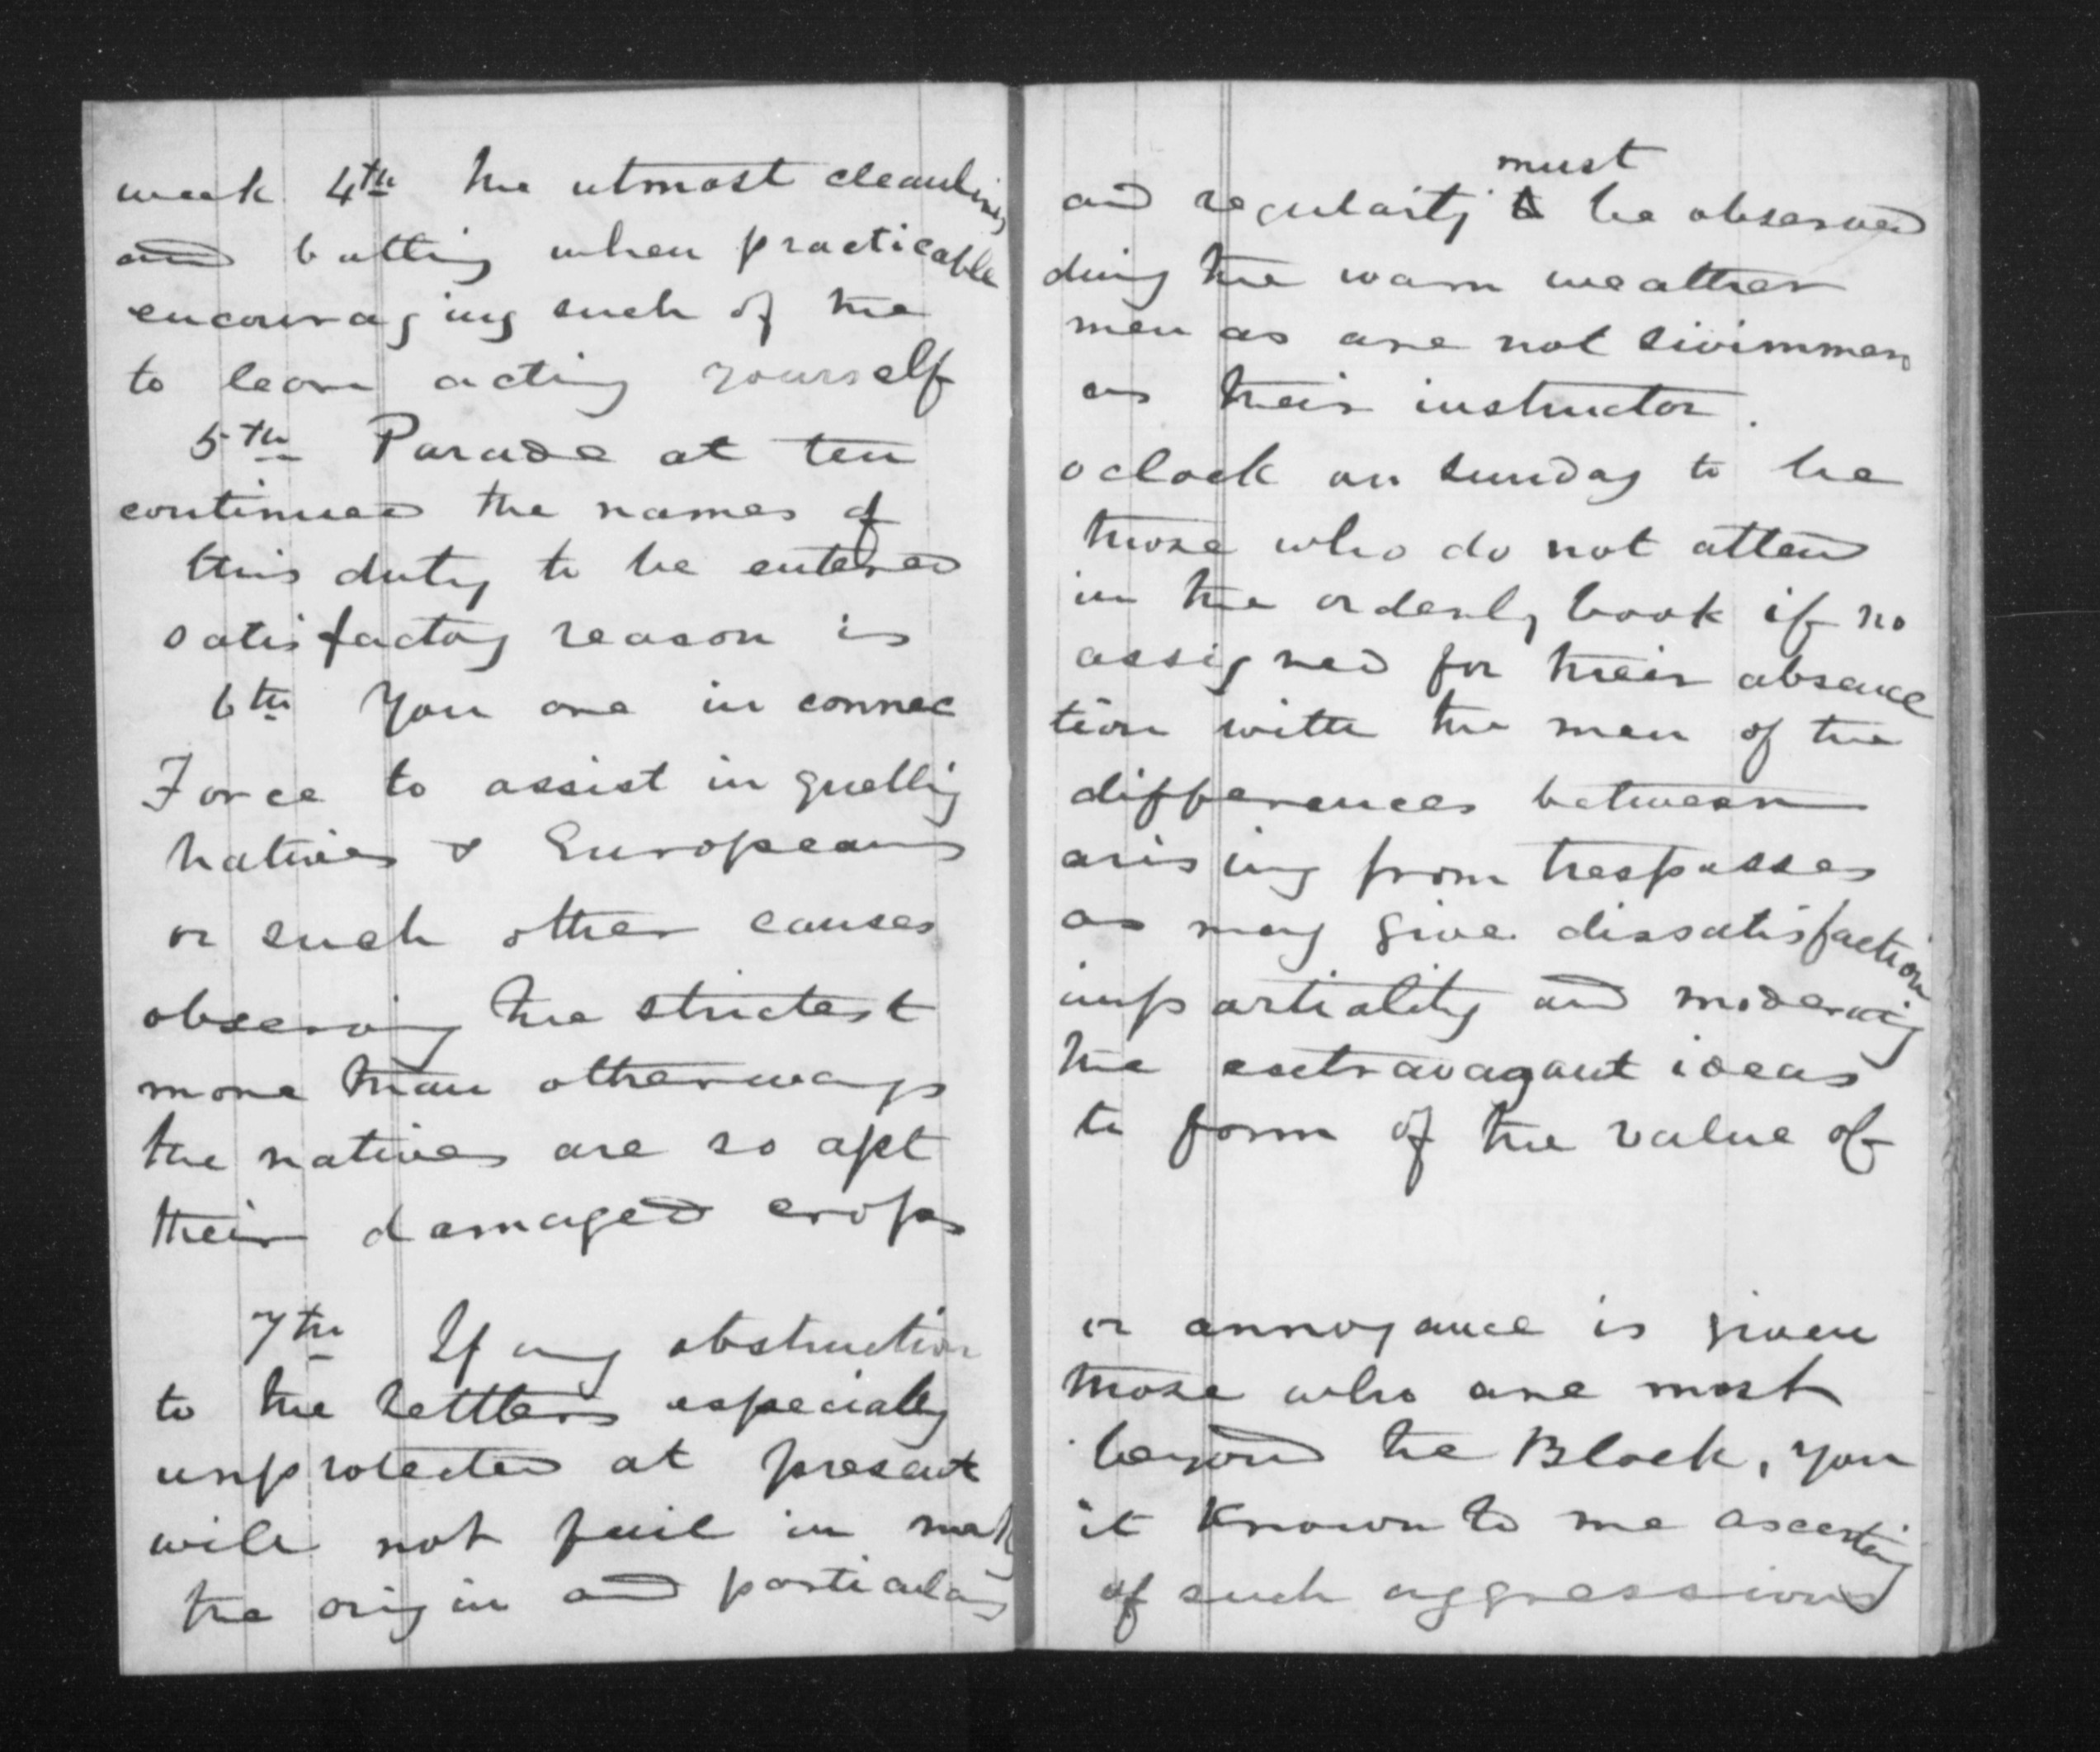 week 4th The utmost cleanliness
must
and regularity to be observed
and bathing when practicable
during the warm weather
encouraging such of the
men as are not swimmers
to learn acting yourself
as their instructor.
5th Parade at ten
oclock on Sunday to be
continued the names of
those who do not attend
this duty to be entered
in the orderly book if no
satisfactory reason is
assigned for their absence
6th You are in connec
tion with the men of the
Force to assist in quelling
differences between
Natives & Europeans
arising from trespasses
or such other causes
as may give dissatisfaction
observing the strictest
impartiality and moderating
more than otherways
the extravagant ideas
the natives are so apt
to form of the value of
their damaged crops
7th If any obstruction
or annoyance is given
to the settlers especially
those who are most
unprotected at present
beyond the Block, you
will not fail in making
it known to me ascertaining
the origin and particulars
of such aggressions